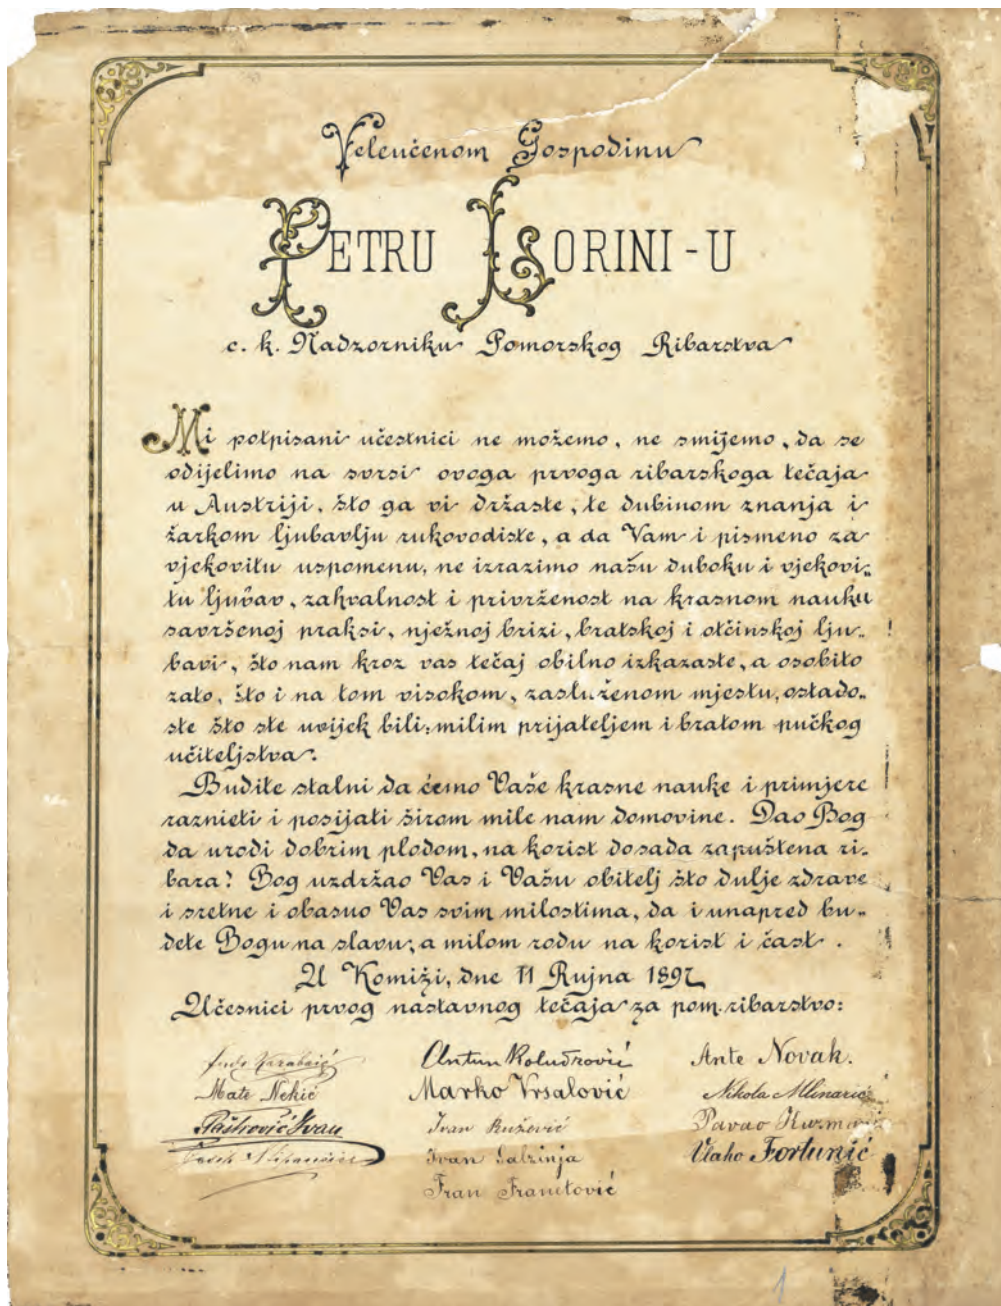 Veleučenom Gospodinu
PETRU LSORINI-U
c. k. Nadzorniku Pomorskog Ribarstva
Mi potpisani učestnici ne možemo, ne smijemo, da se
odijelimo na svrsi ovoga prvoga ribarskoga tečaja
u Austriji, što ga vi držaste, te dubinom znanja i
žarkom ljubavlju rukovodiste, a da Vam i pismeno za
vjekovitu uspomenu, ne izrazimo našu duboku i vjekovi-
tu ljubav, zahvalnost i privrženost na krasnom nauku
savršenoj praksi, nježnoj brizi, bratskoj i otčinskoj lju-
bavi, što nam kroz vas tečaj obilno izkazaste, a osobito
zato, što i na tom visokom, zasluženom mjestu, ostado-
ste što ste uvijek bili: milim prijateljem i bratom pučkog
učiteljstva.
Budite stalni da ćemo Vaše krasne nauke i primjere
raznieti i posijati širom mile nam domovine. Dao Bog
da urodi dobrim plodom, na korist dosada zapuštena ri-
bara! Bog uzdržao Vas i Vašu obitelj što dulje zdrave
i sretne i obasuo Vas svim milostima, da i unapred bu-
dete Bogu na slavu, a milom rodu na korist i čast.
U Komiži, dne 11 Rujna 1897
Učesnici prvog nastavnog tečaja za pom. ribarstvo:
Karabaić Antun Koludrović Ante Novak.
Mate Nekić Marko Vrsalović Nikola Mlinarić
Paštrović Ivan Ivan Ružević Pavao
Ivan Salzinja Vlaho Fortunić
Fran Franetović
1